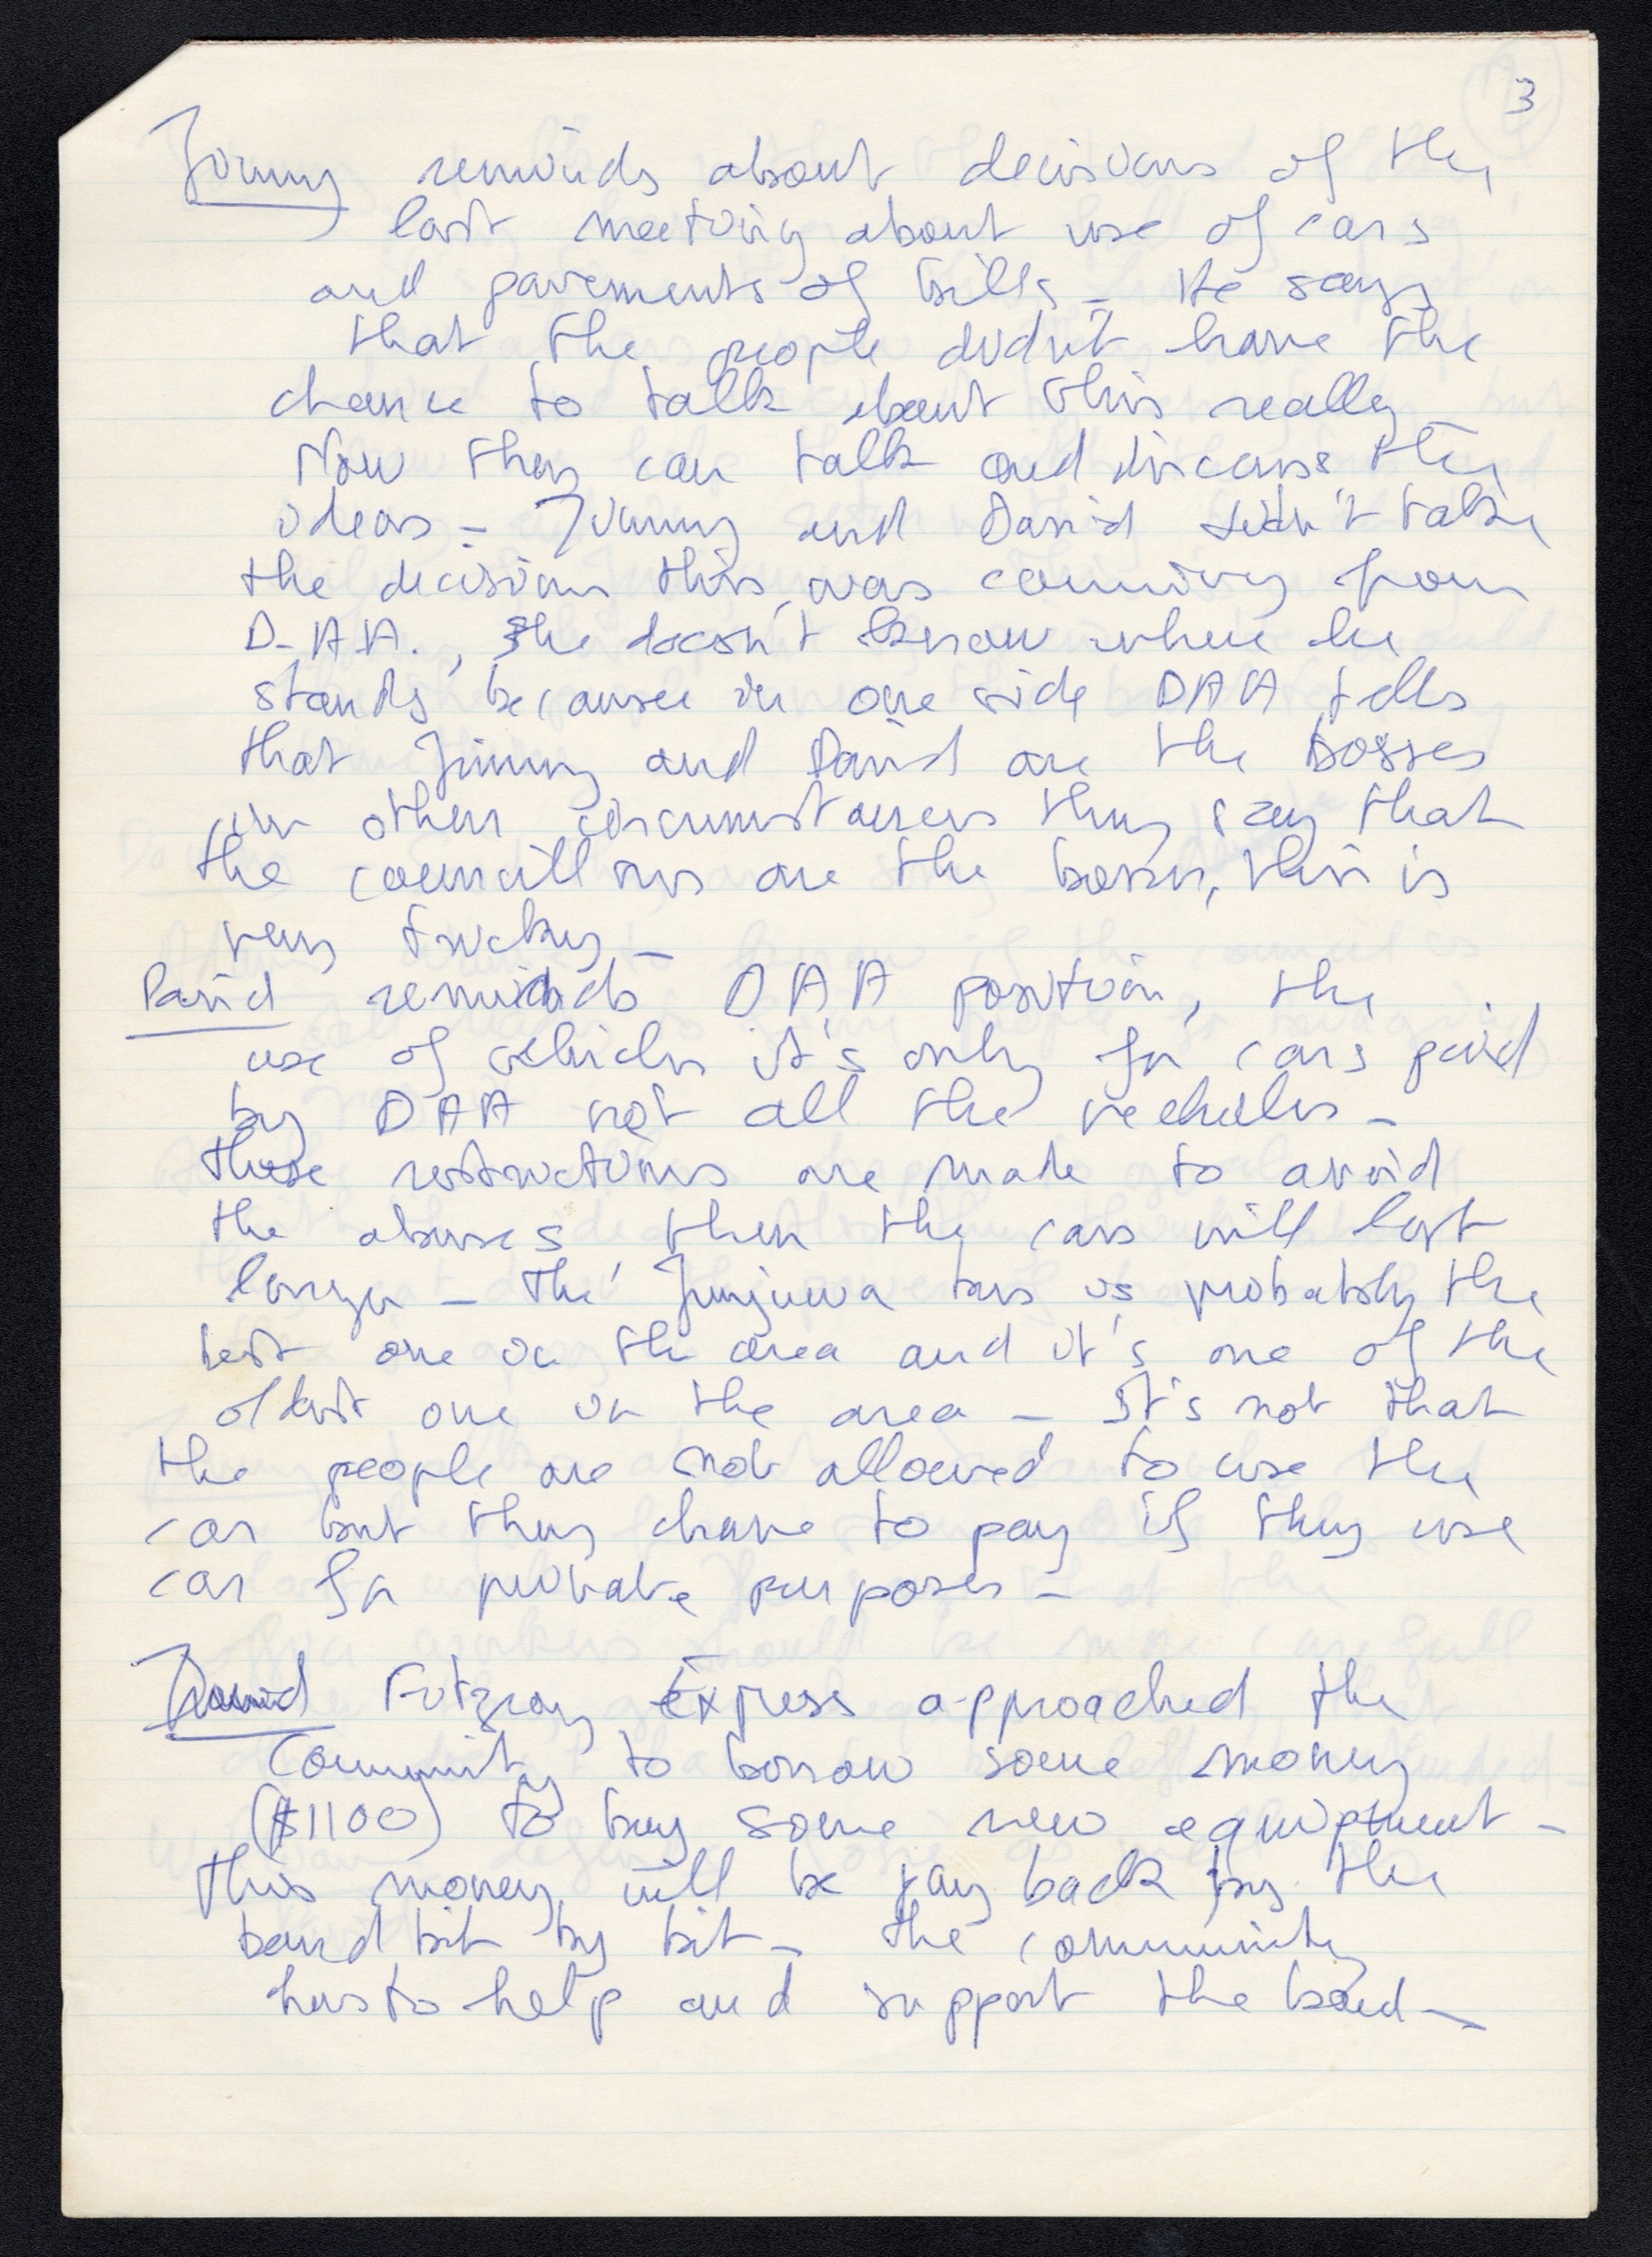 3
Jimmy reminds about decisions of the
last meeting about use of cars
and pavements of bills - He says
that the people didn't have the
chance to talk about this really -
Now they can talk and discuss the
ideas - Jimmy and David didn't take
the decisions this was coming from
D.A.A., he doesn't know where he
stands because in one side DAA tells
that Jimmy and David are the bosses
in other circumstances they say that
the councillors are the bosses, this is
very tricky -
David reminds DAA position, the
use of vehicles it's only for cars paid
by DAA not all the vehicles -
those restrictions are made to avoid
the abuses, then the cars will last
longer - The Junjuwa bus is probably the
best one in the area and it's one of the
oldest one in the area - It's not that
the people are not allowed to use the
car but they have to pay if they use
car for private purposes -
David Fitzroy Express approached the
Community to borrow some money
($1100) to buy some new equiptment -
This money will be pay back by the
band bit by bit - the community
has to help and support the band -